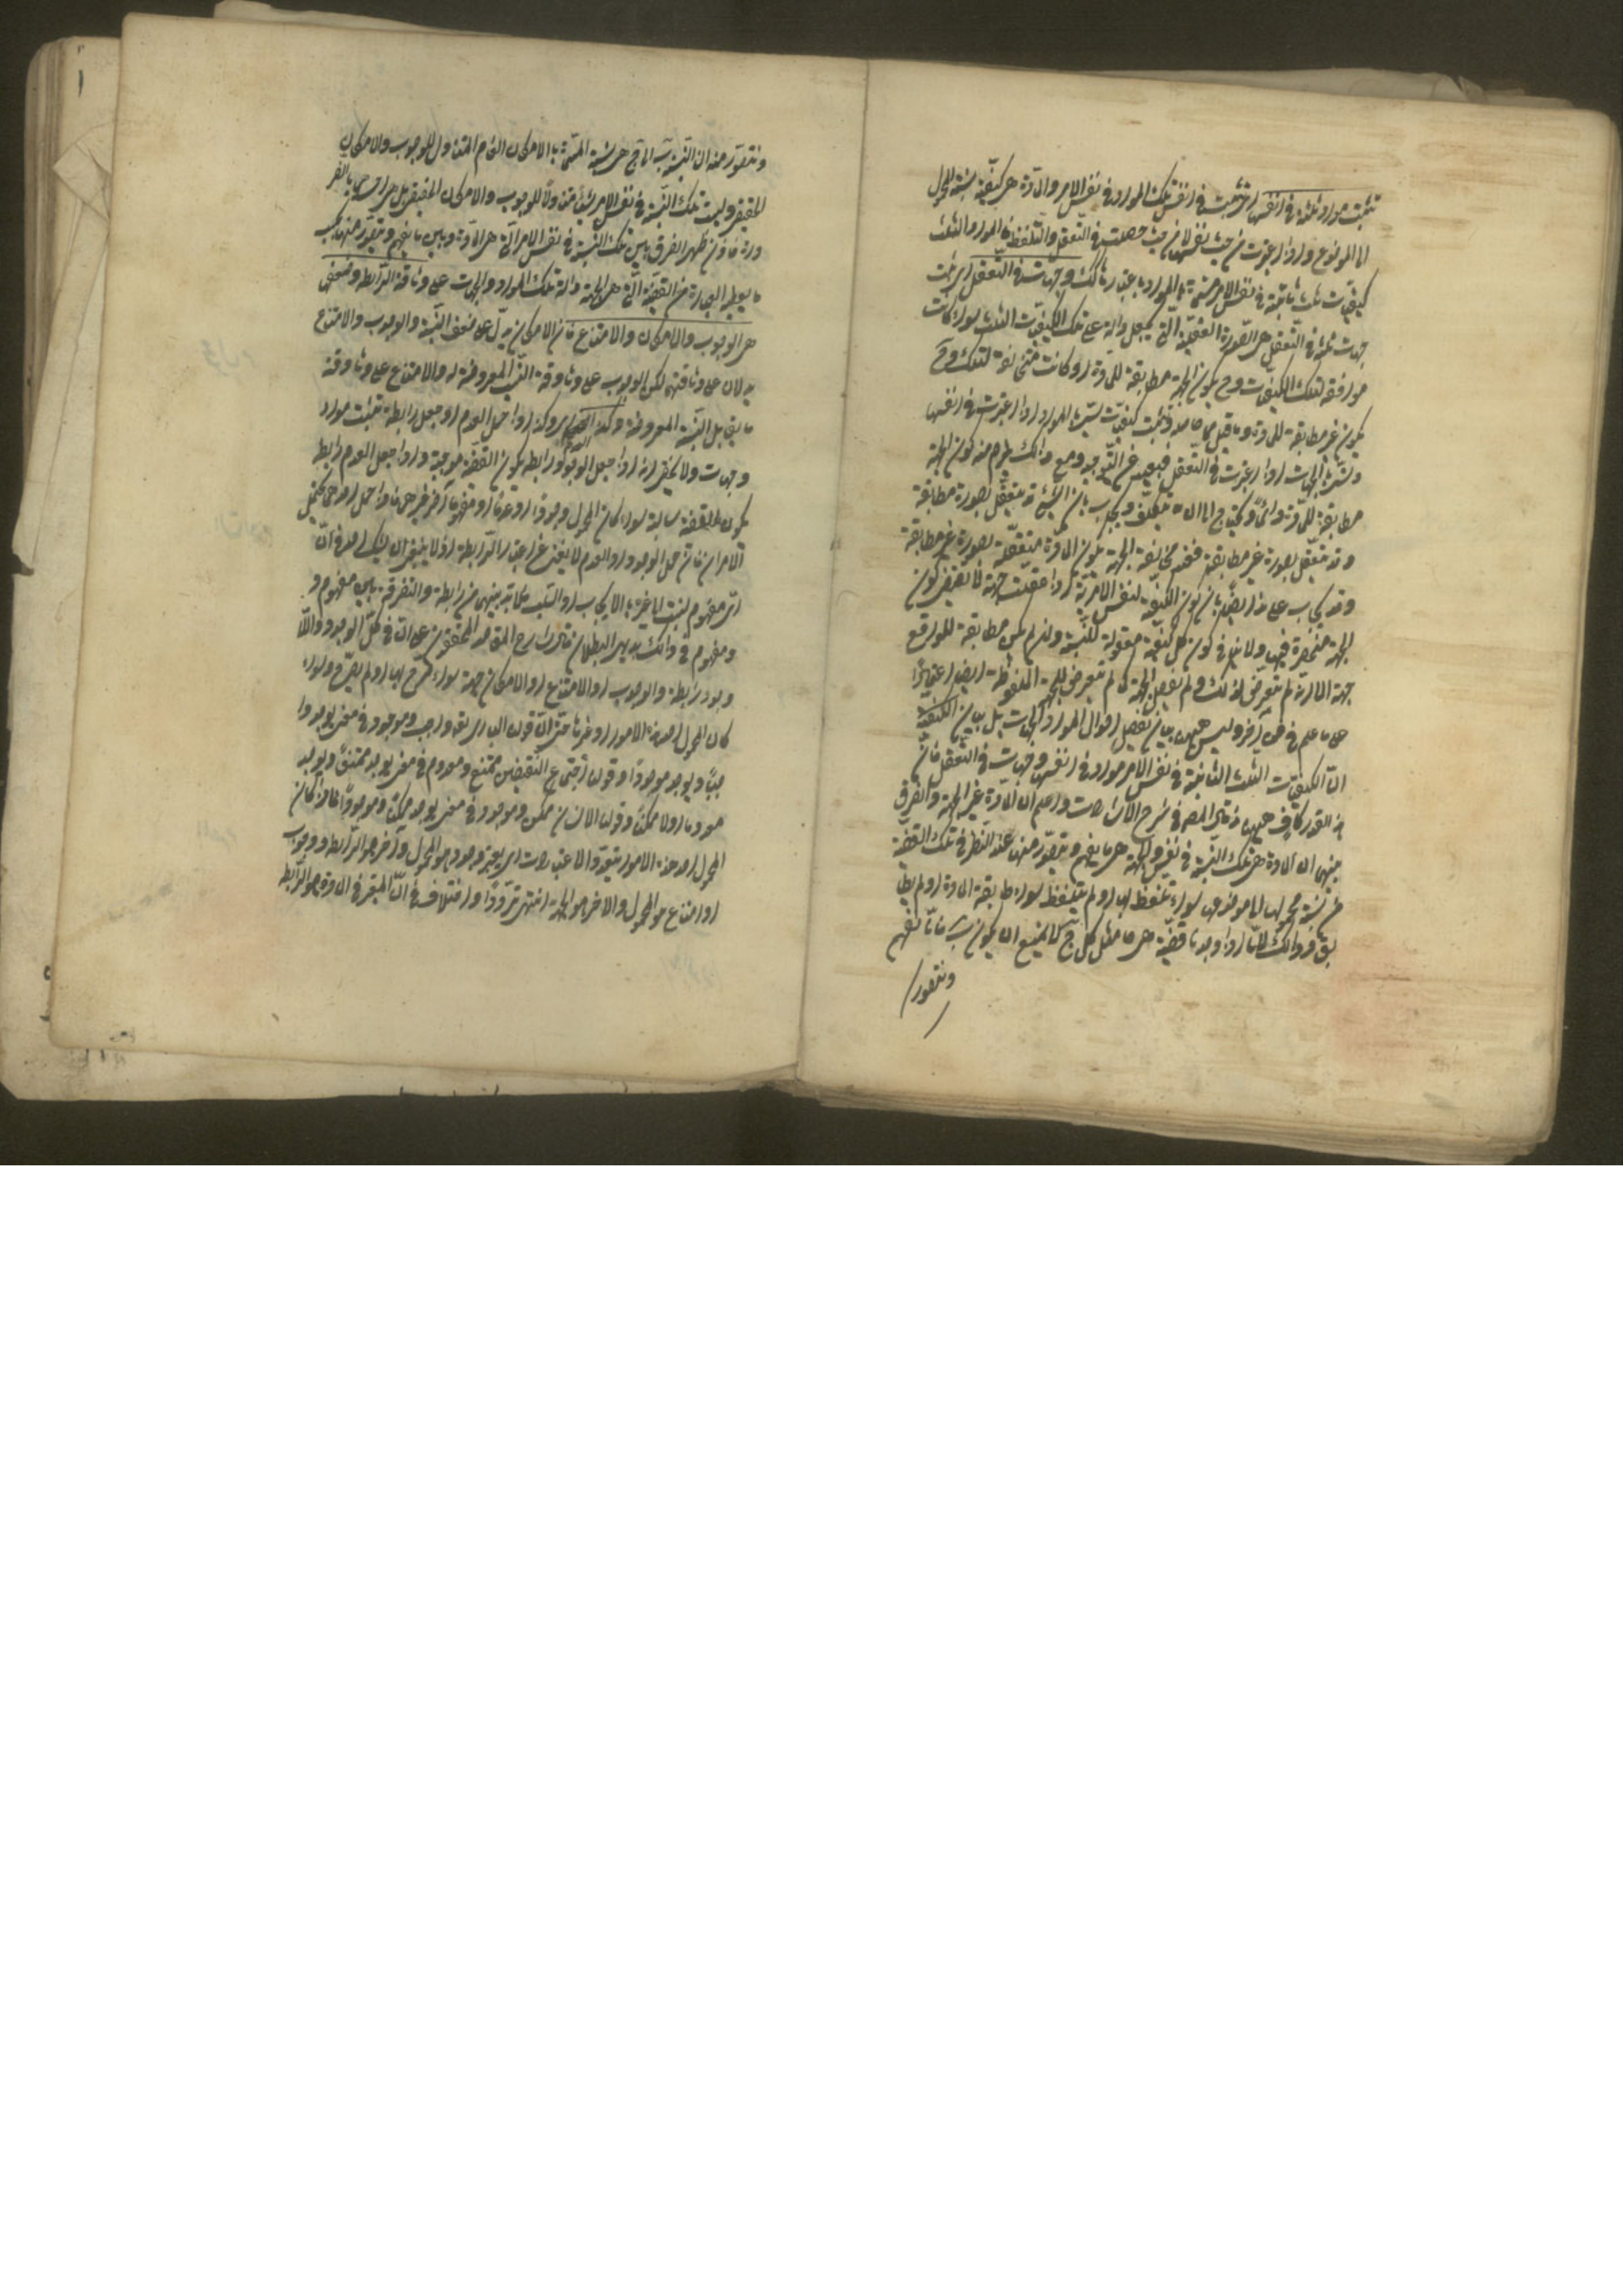 تثبت مواد ثلثة في انفسها اى تثبت في انفس تلك المواد في نفس الامر والمادة هي كيفية نسبة المحمول
الى الموضوع واذا اعتبرت من حيث نفسها لا من حيث حصلت في التعقل والتلفظ فالمواد الثلث
كيفيات ثلث ثابتة في نفس الامر مسماة بالمواد باعتبار ذلك وجهات في التعقل اى تثبت
جهات ثلثة في التعقل هي الصورة العقلية التي تجعل دالة على تلك الكيفيات الثلث سواء كانت
موافقة لتلك الكيفيات وح يكون الجهة مطابقة للمادة او كانت مخالفة لتلك وح
يكون غير مطابقة للمادة وما قيل حاصله تثبت كيفيات تسمى بالمواد اذا اعتبرت في انفسها
وتسمى بالجهات اذا اعتبرت في التعقل فبعيد عن التوجيه ومع ذلك يلزم منه كون الجهة
مطابقة للمادة دائما ويحتاج الى ان يتكلف ويجاب بان الشيء قد يتعقل بصورة مطابقة
وقد يتعقل بصورة غير مطابقة فعند مخالفة الجهة يكون المادة متعقلة بصورة غير مطابقة
وقد يجاب على هذا ايضا بان كون الكيفية لنفس الامرية اذا عقلت جهة لا يقتضى كون
الجهة منحصرة فيها ولا ينافي كون كل كيفية معقولة للنسبة وان لم يكن مطابقة للواقع
جهة الا انه لم يتعرض لذلك ولم يفصل الجهة كما لم يتعرض للجهة الملفوظة ايضا اعتمادا
على ما علم في فن آخر وليس ههنا بيان تفصيل احوال المواد والجهات بل بيان الكيفية
ان الكيفيات الثلث الثابتة في نفس الامر مواد في انفسها وجهات في التعقل فان
هذا القدر كاف ههنا قال المص في شرح الاشارات واعلم ان المادة غير الجهة والفرق
بينهما ان المادة هي تلك النسبة في نفس الامر والجهة هي ما يفهم ويتصور منها عند النظر في تلك القضية
من نسبة محمولها الى موضوعها سواء تلفظ بها او لم يتلفظ سواء طابقت المادة او لم يطا
بق وذلك لانا اذا وجدنا قضية هي مثل كل ج لا يمتنع ان يكون ب فانا نفهم
ونتصور
ونتصور منه ان النسبة ب الى ج هي نسبة المسماة بالامكان العام المتناول للوجوب والامكان
الحقيقي وليست تلك النسبة في نفس الامر شيئا متناولا للوجوب والامكان الحقيقي بل هي احدهما بالضر
ورة فاذن ظهر الفرق بين تلك النسبة في نفس الامر التي هي المادة وبين ما يفهم ويتصور منها بحسب
ما يعطيه العبارة من القضية التي هي الجهة دالة تلك المواد والجهات على وثاقة الرابطة وضعفها
هي الوجوب والامكان والامتناع فان الامكان يدل على ضعف النسبة والوجوب والامتناع
يدلان على وثاقتها لكن الوجوب على وثاقة النسبة المعروضة له والامتناع على وثاقة
ما يقابل النسبة المعروضة وكذا العدم وكذا اذا حمل العدم او جعل رابطة تثبت مواد
وجهات ولا يخفى انه اذا جعل الوجود رابطة يكون القضية موجبة واذا جعل العدم رابطة
يكون القضية سالبة سواء كان المحمول وجودا او عدما او مفهوما آخر غيرهما فاذا حمل احدهما يحتمل
الامران فان حمل الوجود او العدم لا يغني عن اعتبار الرابطة اذ لا ينبغى ان يشك احد في ان
اى مفهوم نسبت الى غيره بالايجاب او السلب فلا بد بينهما من رابطة والتفرقة بين مفهوم و
مفهوم في ذلك بديهى البطلان قال الشارح المق قد المحققون على ان في كل الوجود واللا
وجود رابطة والوجوب او الامتناع او الامكان جهة سواء صرح بها او لم يصرح وسواء
كان المحمول احد هذه الامور او غيرها حتى ان قولنا البارى تعالى واجب وموجود في معنى يوجد وا
جبا ويوجد موجودا وقولنا اجتماع النقيضين ممتنع ومعدوم في معنى يوجد ممتنعا ويوجد
معدوما او لا ممكنا وقولنا الانسان ممكن وموجود في معنى يوجد ممكنا وموجودا فاذن كان
المحمول احد هذه الامور يتعدد الاعتبارات اى يعتبر وجود هو المحمول وآخر هو الرابطة ووجوب
او امتناع هو المحمول والاخر هو الجهة انتهى ترددا واختلاف في ان المعتبر في المادة هو الرابطة